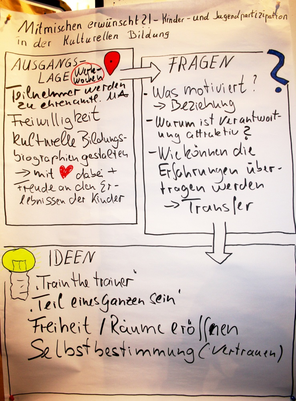 Mitmischen erwünscht 21 - Kinder- und Jugendpartizipation
in der Kulturellen Bildung
AUSGANGS-
LAGE
Teilnehmer werden
zu ehrenamtl. MA
Freiwilligkeit
kulturelle Bildungs-
biographien gestalten
→ mit dabei +
Freude an den Er-
lebnissen der Kinder
FRAGEN ?
- Was motiviert?
→ Beziehung
- Warum ist Verantwort-
ung attraktiv?
- Wie können die
Erfahrungen über-
tragen werden
→ Transfer
IDEEN
'Train the trainer'
'Teil eines Ganzen sein'
Freiheit / Räume eröffnen
Selbstbestimmung (Vertrauen)